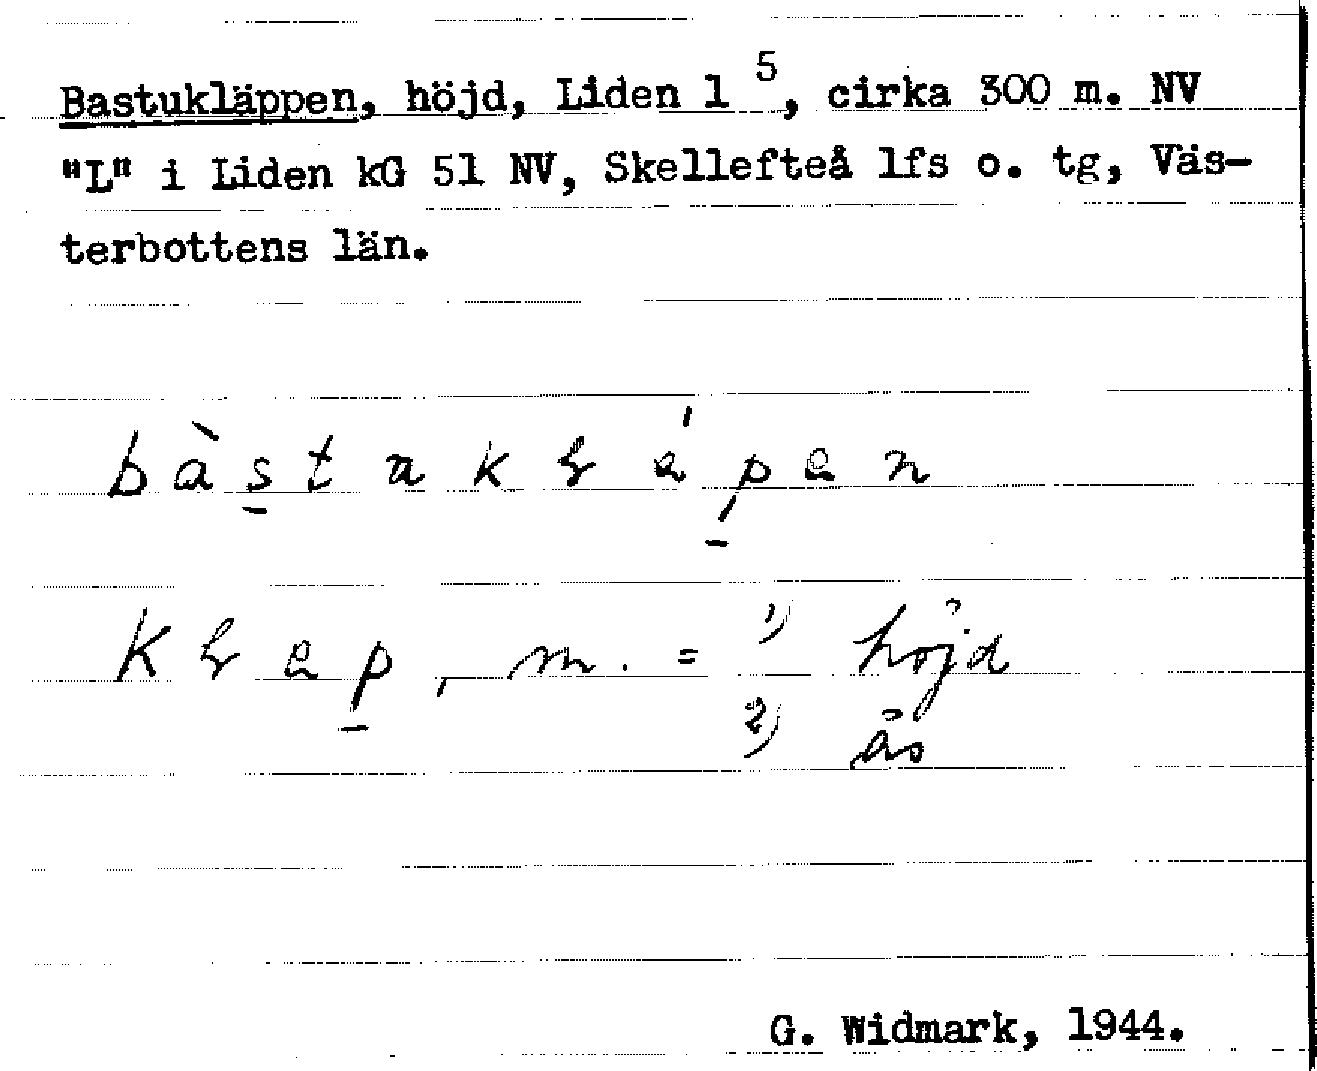 Bastukläppen, höjd, Liden 1 5, cirka 300 m. NV
"L" i Liden kG 51 NV, Skellefteå lfs o. tg, Väs-
terbottens län.
, m. = 1) höjd
2) ås
G. Widmark, 1944.